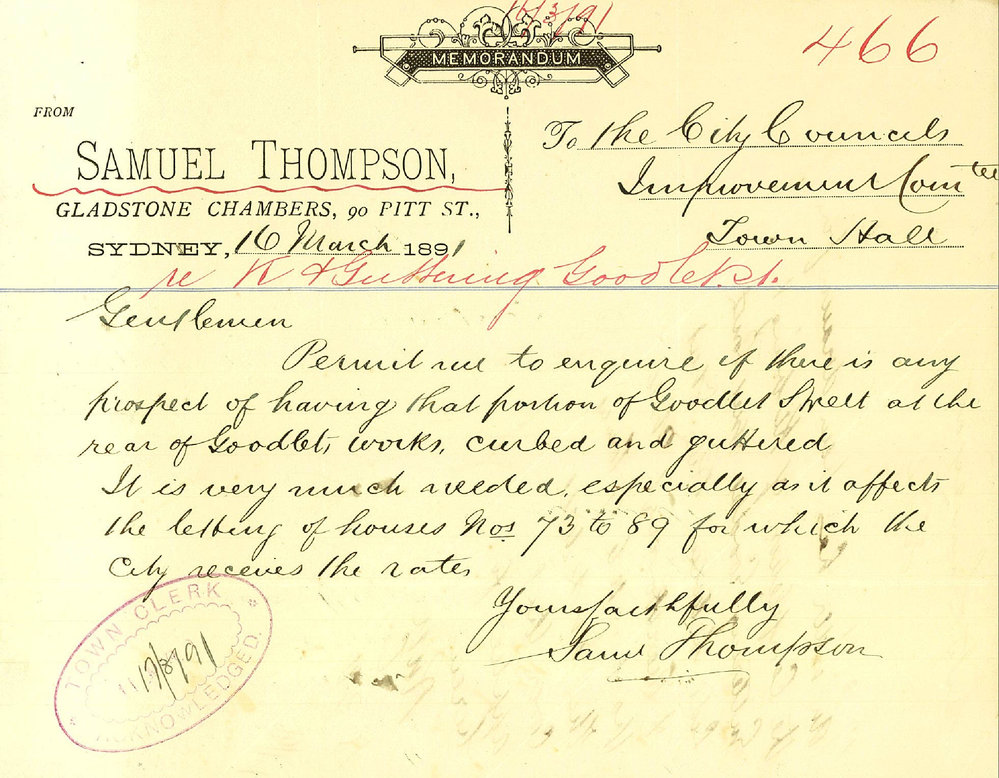 16/3/91
466
MEMORANDUM
FROM
SAMUEL THOMPSON,
GLADSTONE CHAMBERS, 90 PITT ST.,
SYDNEY, 16 March 1891
To the City Councils
Improvement Comtee
Town Hall
re K & Guttering Goodlet St.
Gentlemen
Permit me to enquire if there is any
prospect of having that portion of Goodlet Street at the
rear of Goodlets works, curbed and guttered
It is very much needed, especially as it affects
the letting of houses Nos 73 to 89 for which the
City receives the rates
Yours faithfully
Saml Thompson
TOWN CLERK
17/3/91
ACKNOWLEDGED.